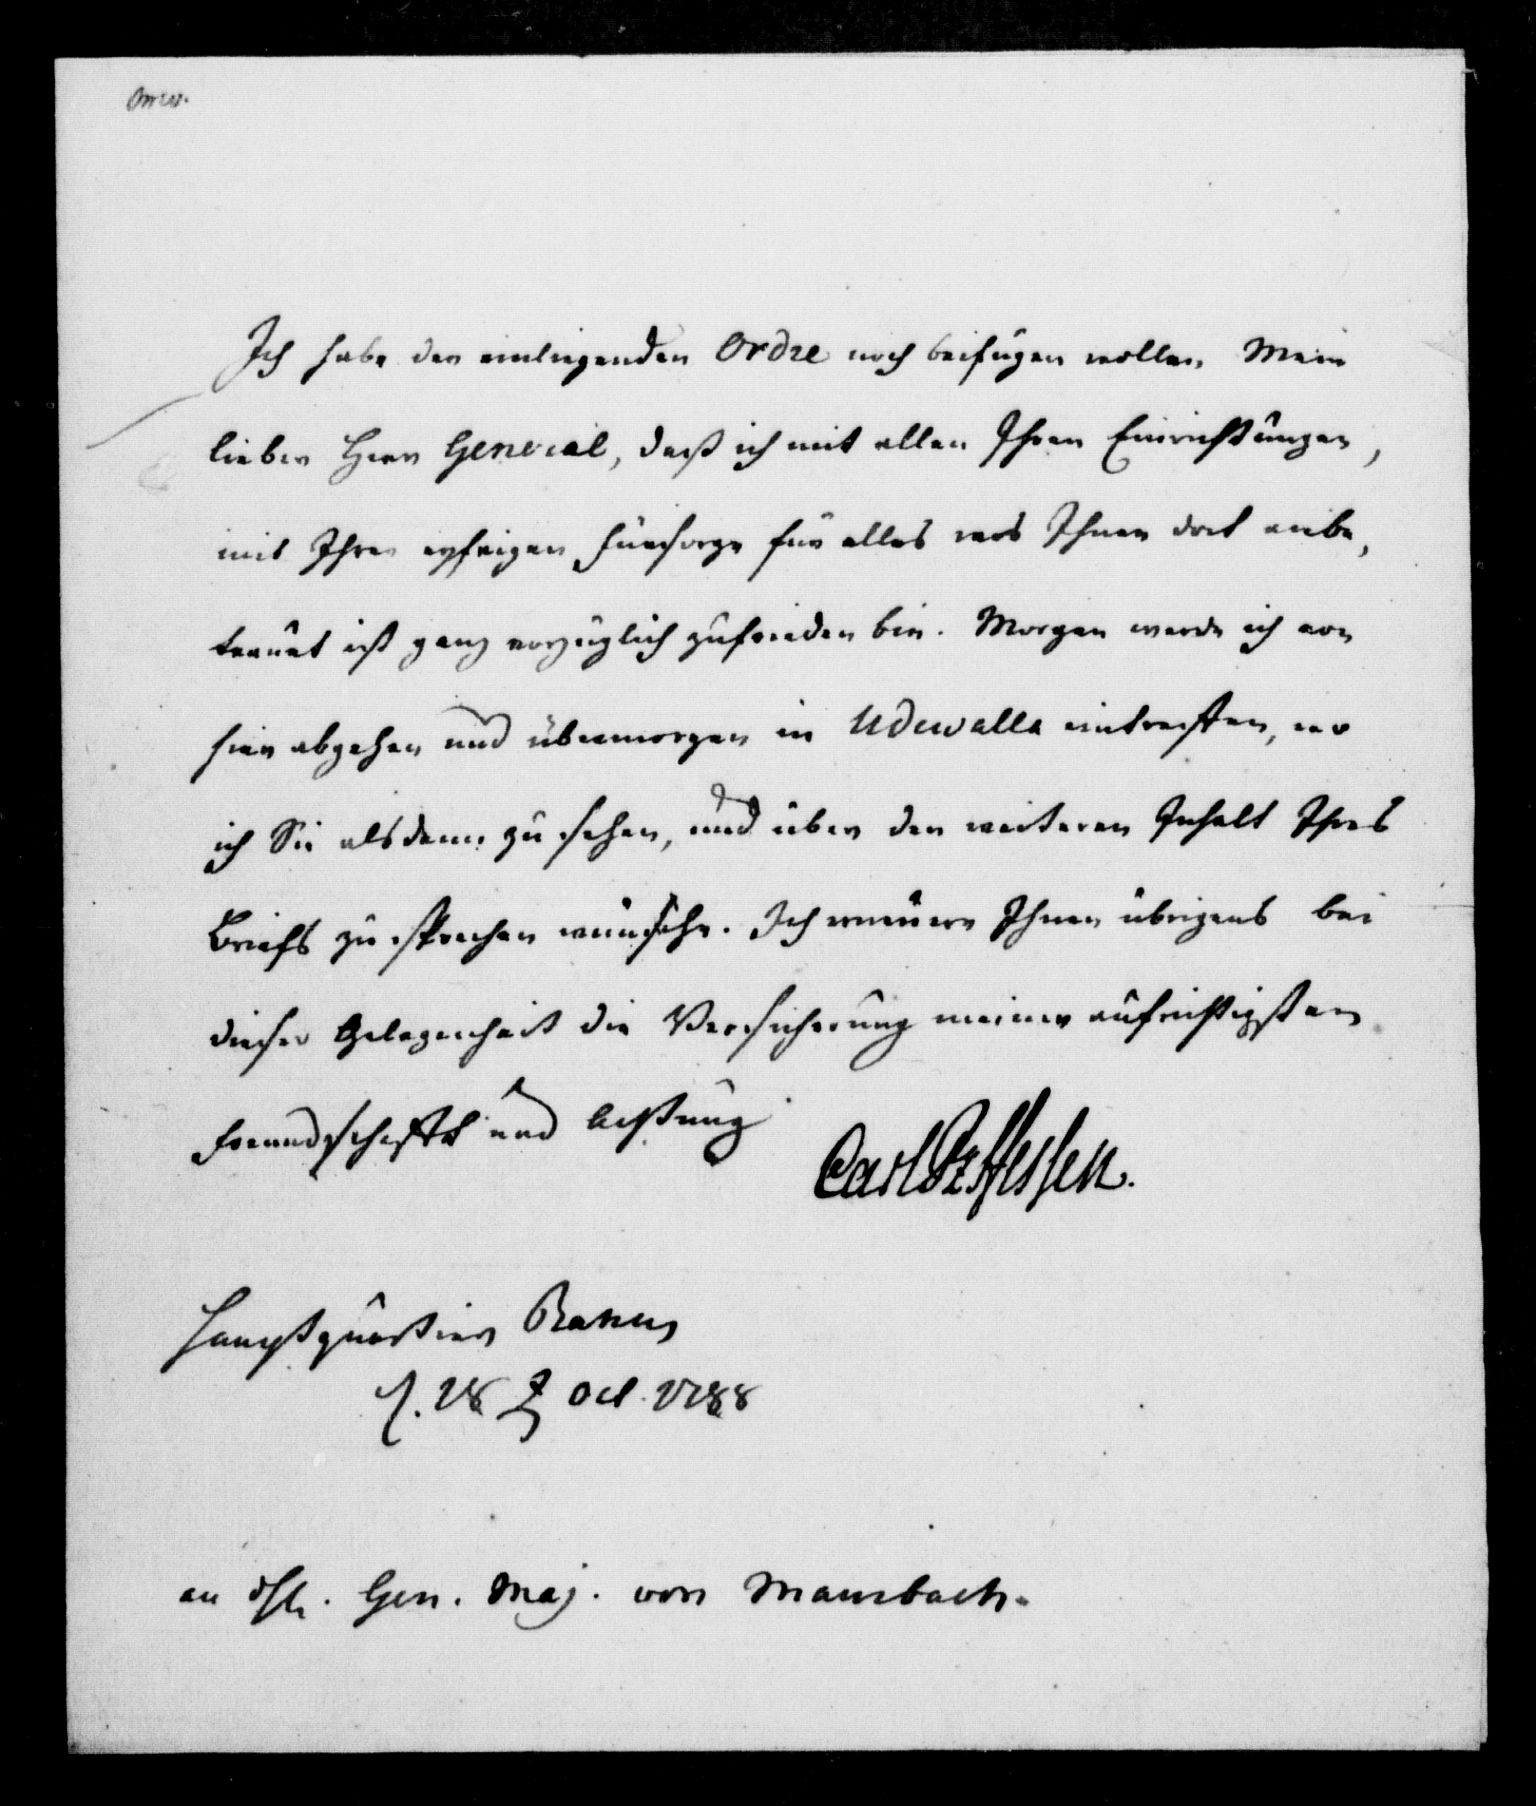 Ich habe der einliegenden Ordre noch beifügen wollen, Mein
lieber Herr General, daß ich mit allen Ihren Einrichtungen,
mit Ihrer eyfrigen Fürsorge für alles was Ihnen dort anve,
trauet ist ganz vorzüglich zufrieden bin. Morgen werde ich von
hier abgehen und übermorgen in Udewalla eintreffen, wo
ich Sie alsdann zu sehen, und über den weiteren Inhalt Ihres
Briefs zu sprechen wünsche. Ich erneuere Ihnen übrigens bei
dieser Gelegenheit die Versicherung meiner aufrichtigsten
Freundschaft und Achtung
Carl Pz Hessen.
Hauptquartier
d. 28 Oct. 1788
an Gen. Maj. von Mansbach.